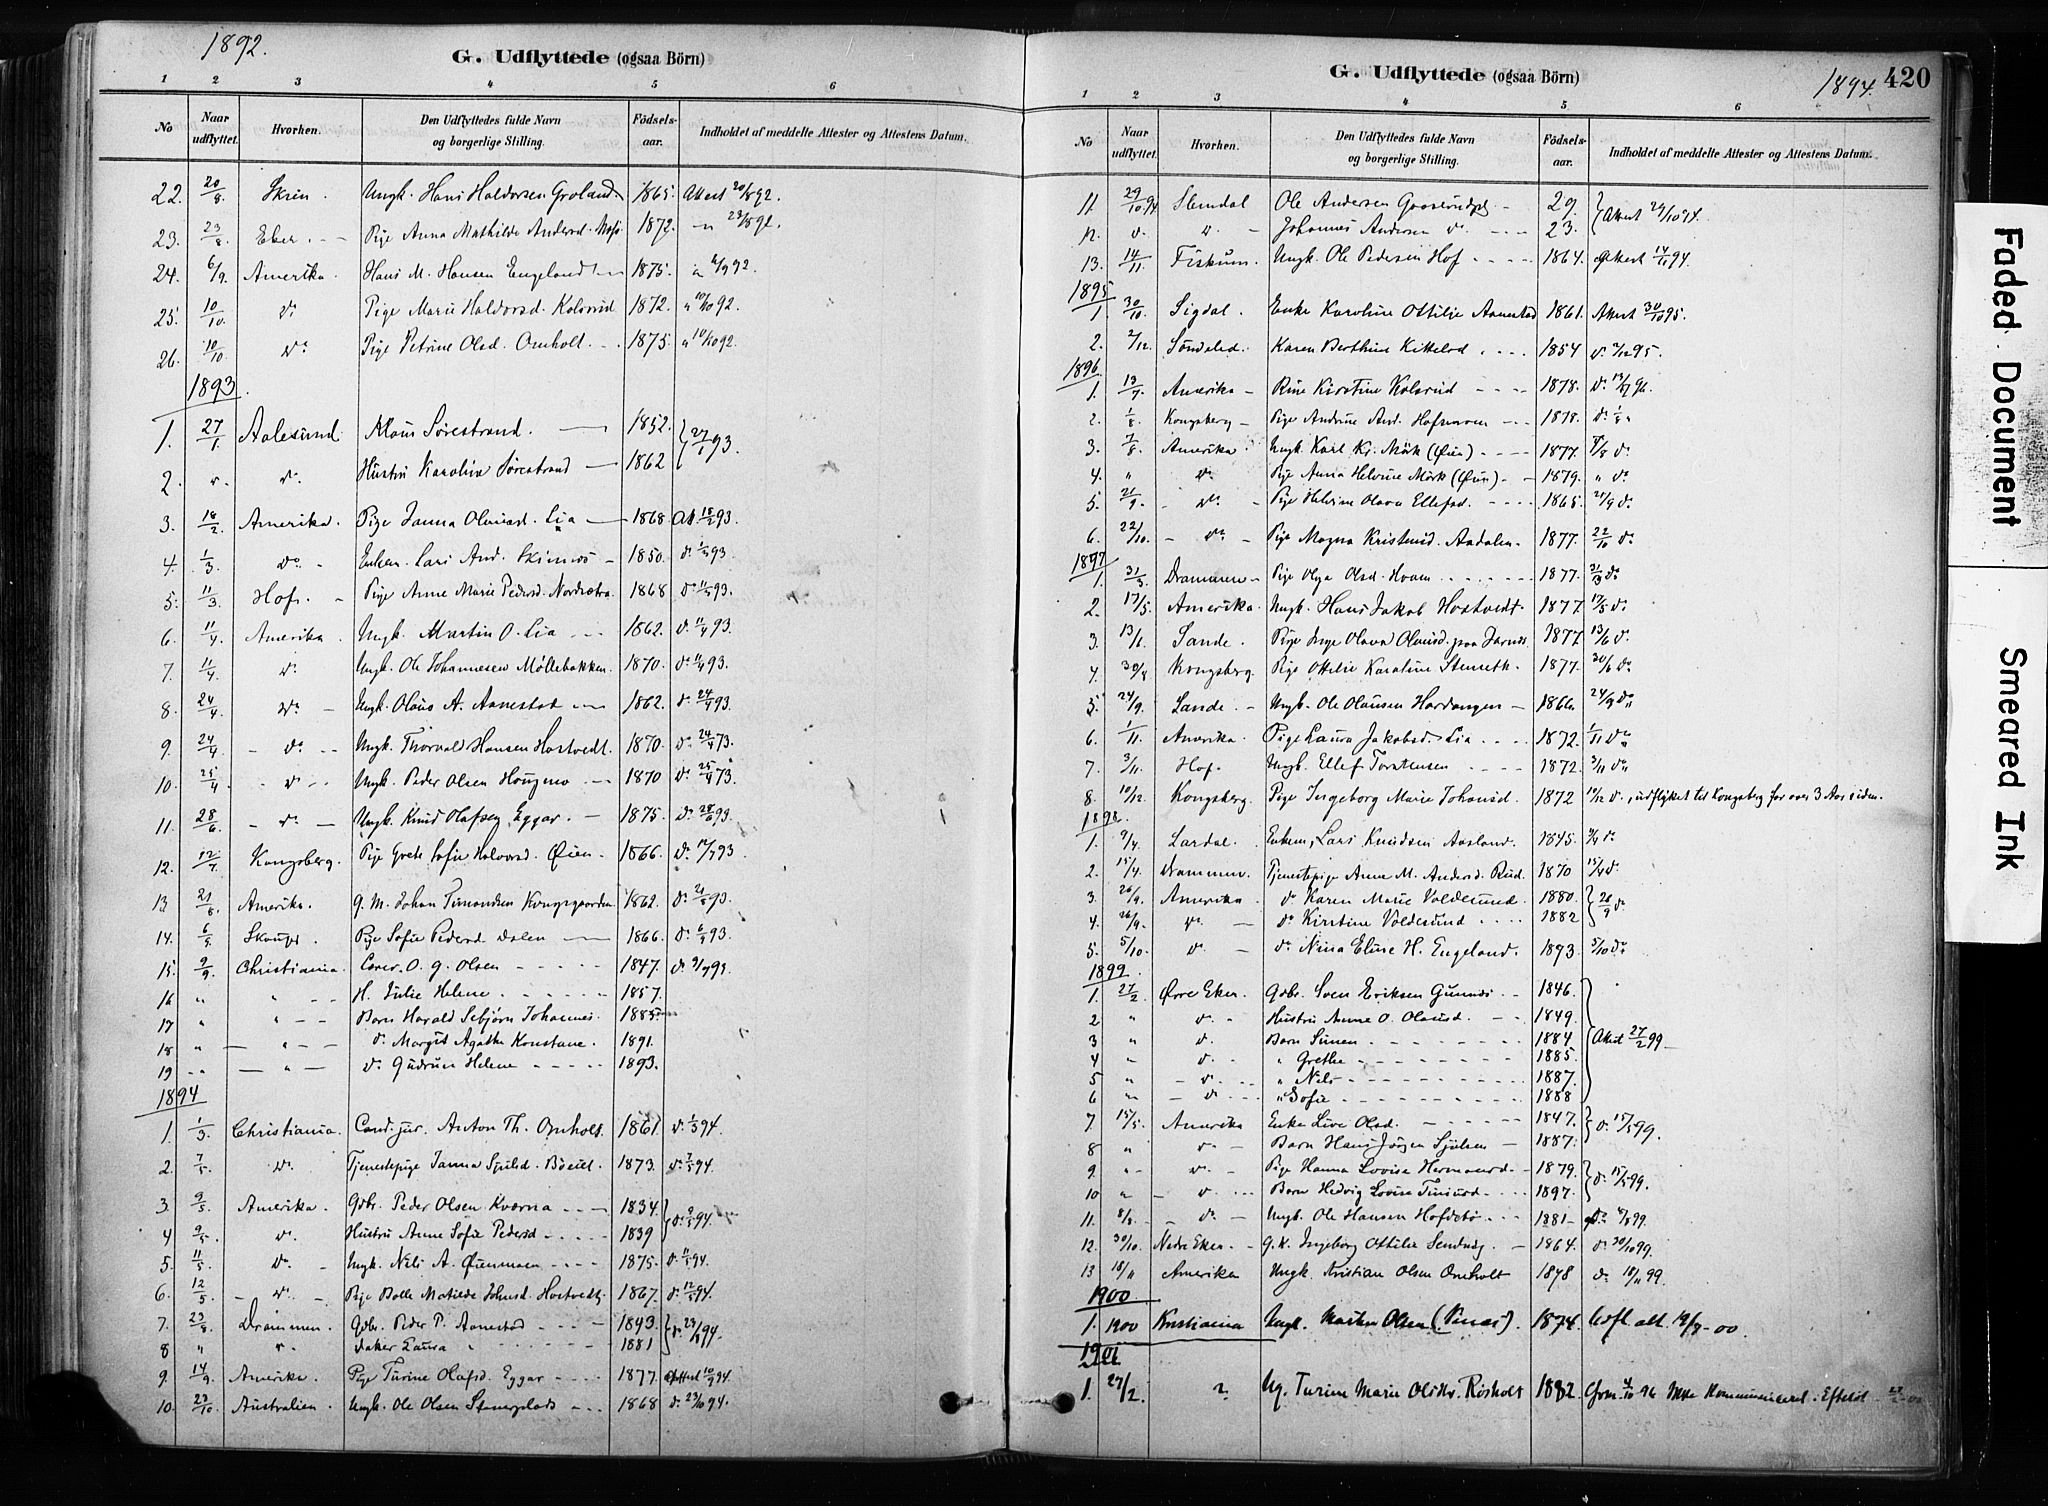 1892.
G. Udflyttede (ogsaa Börn)
1 2 3 4 5 6
No
Naar udflyttet.
Hvorhen.
Den Udflyttedes fulde Navn og borgerlige Stilling.
Födsels-aar.
Indholdet af meddelte Attester og Attestens Datum.
22. 20/8 Skien Ungk. Hans Haldorsen Groland 1865. Attest 20/8 92.
23. 23/8 Eker Pige Anna Mathilde Andersd. 1872. 23/8 92.
24. 6/9. Amerika. Hans M. Hansen Engeland 1875. 6/9 92.
25. 10/10. do Pige Marie Haldorsd. Kolsrud 1872. " 10/10 92.
26. 10/10 do Pige Petrine Olsd. Omholt. 1875. " 10/10 92.
1893.
1. 27/1. Aalesund Klaus Sørestrand. 1852. 27/1 93.
2. do Hustru Karoline Sørestrand 1862
3. 18/2. Amerika. Pige Janna Olausd. Lia 1868 At. 18/2 93.
4. 1/3 do Enkem. Lars And. 1850. do 1/3 93.
5. 11/3 Hof. Pige Anne Marie Pedersd. 1868 do 11/3 93.
6. 11/4 Amerika. Ungk. Martin O. Lia 1862. do 11/4 93.
7. 11/4. do Ungk. Ole Johannesen Møllebakken. 1870. do 11/4 93.
8. 24/4 do Ungk. Olaus A. Aanestad 1862. do 24/4 93.
9. 24/4 do Ungk. Thorvald Hansen Hostvedt. 1870. do 24/4 73.
10. 25/4 do Ungk. Peder Olsen Hougmo 1870 do 25/4 73.
11. 28/6 do Ungk. Knud Olafsen Eggar. 1875. do 28/6 93.
12. 12/7 Kongsberg. Pige Grete Sofie Halvorsd. Øien 1866. do 12/7 93.
13. 21/8 Amerika. G. M. Johan Simondsen Kongsgaarden 1862. do 21/8 93.
14. 6/9. Skouger. Pige Sofie Pedersd. Dalen 1866. do 6/9 93.
15. 9/9. Christiania. O. G. Olsen 1847. do 9/9 93.
16 " " H. Julie Helene 1857.
17 " " Barn Harald Sebjørn Johannes. 1885
18 " " do Margit Agathe Konstane. 1891.
19 " " do Gudrun Helene 1893.
1894
1. 1/3. Christiania. Cand. jur. Anton Th. Omholt. 1861. do 1/3 94.
2. 7/5. do Tjenestepige Janna 1873. do 7/5 94.
3. 9/5. Amerika. Gdbr. Peder Olsen Kværna 1834. do 9/5 94.
4 9/5. do Hustru Anne Sofie Pedersd. 1839
5. 11/5 do Ungk. Nils A. Øunmoen 1875. do 11/5 94.
6. 12/5 do Pige Bolle Matilde Johnsd. Hostvedt 1867. do 12/5 94.
7. 23/8 Drammen. Gdbr. Peder P. Aanestad 1843. do 23/8 94.
8 " " Datter Laura " 1881
9. 14/9. Amerika. Pige Turine Olafsd. Eggar 1877. Attest 10/9 94.
10. 23/10 Australien. Ungk. Ole Olsen Stengplads 1868 do 23/10 94.
G. Udflyttede (ogsaa Börn)
1894. 420
1 2 3 4 5 6
No
Naar udflyttet.
Hvorhen.
Den Udflyttedes fulde Navn og borgerlige Stilling.
Födsels-aar.
Indholdet af meddelte Attester og Attestens Datum.
11. 29/10 94 Slemdal Ole Andersen 29. Attest 29/10 94.
12. do do Johannes Andersen do 23.
13. 14/11. Fiskum. Ungk. Ole Pedersen Hof 1864. Attest 14/11 94.
1895
1. 30/10. Sigdal. Enke Karoline Ottilie Aanestad 1861. Attest 30/10 95.
2. 2/12. Søndeled. Karen Berthine Kittelsd. 1854 do 2/12 95.
1896.
1. 13/7. Amerika Rine Kirstine Kolsrud 1878. do 13/7 96.
2. 1/8. Kongsberg Pige Andrine And. Hofsmoen 1878. do 1/8 "
3. 7/8 Amerika. Ungk. Karl Kr. Mørk (Øien) 1877. 7/8 do
4. " do Pige Anna Helvine Mørk (Øien) 1879. " do
5. 21/9. do Pige Helvine Olava Ellefsd. 1865. 21/9 do
6. 22/10. do Pige Magna Kristensd. Aadalen 1877. 22/10 do
1897
1. 31/3. Drammen Pige Olga Olsd. Hvam 1877. 31/3 do
2. 17/5. Amerika. Ungk. Hans Jakob Hostvedt. 1877. 17/5 do
3. 13/ Sande. Pige Inge Olava Olausd. paa 1877. 13/6 do
4. 30/ Kongsberg. Pige Ottilie Karoline Stensth. 1877. 30/6 do
5. 24/9. Sande. Ungk. Ole Olausen Hardangen 1866. 24/9 do
6. 1/11. Amerika. Pige Laura Jakobsd. Lia 1872. 1/11 do
7. 3/11. Hof. Ungk. Ellef Torstensen 1872. 3/11 do
8. 10/12. Kongsberg. Pige Ingeborg Marie Johansd. 1872 10/12 do, udflyttet til Kongsberg for over 3 Aar siden.
1898.
1. 9/4. Lardal. Enkem. Lars Knudsen Aasland. 1845. 9/4 do
2. 15/4. Drammen. Tjenestepige Anne M. Andersd. Rud. 1870 15/4 do
3. 26/9. Amerika do Karen Marie Voldesund. 1880. 26/9 do
4. 26/9. do do Kirstine Voldesund 1882
5. 5/10. do do Nina Elise H. Engeland. 1873. 5/10 do
1899.
1. 27/2 Øvre Eker. Gdbr. Sven Eriksen Gunnes 1846.
2 " do Hustru Anne O. Olausd. 1849.
3 " do Barn Simen 1884. Attest 27/2 99
4 " do " Grethe 1885.
5 " do " Nils 1887.
6 " do " Sofie 1888
7 15/5. Amerika Enke Live Olsd. 1847. do 15/5 99.
8 " do Barn Hans Jørgen 1887.
9. " do Pige Hanna Lovise 1879. do 15/5 99.
10 " do Barn Hedvig Lovise 1897.
11. 8/8. do Ungk. Ole Hansen 1881 do 8/8 99.
12. 30/10. Nedre Eker. G. K. Ingeborg Ottilie 1864. do 30/10 99.
13 18/11 Amerika Ungk. Kristian Olsen Omholt 1878 do 18/11 99.
1900.
1. 1900 Kristiania Ungk. Morten Olsen 1874. Udfl. att. 00.
1901
1. 27/2. ? Ug. Turine Marie Olsdtr. Røsholt 1882. Ikke Kommuniceret i Efteløt
Faded Document Smeared Ink